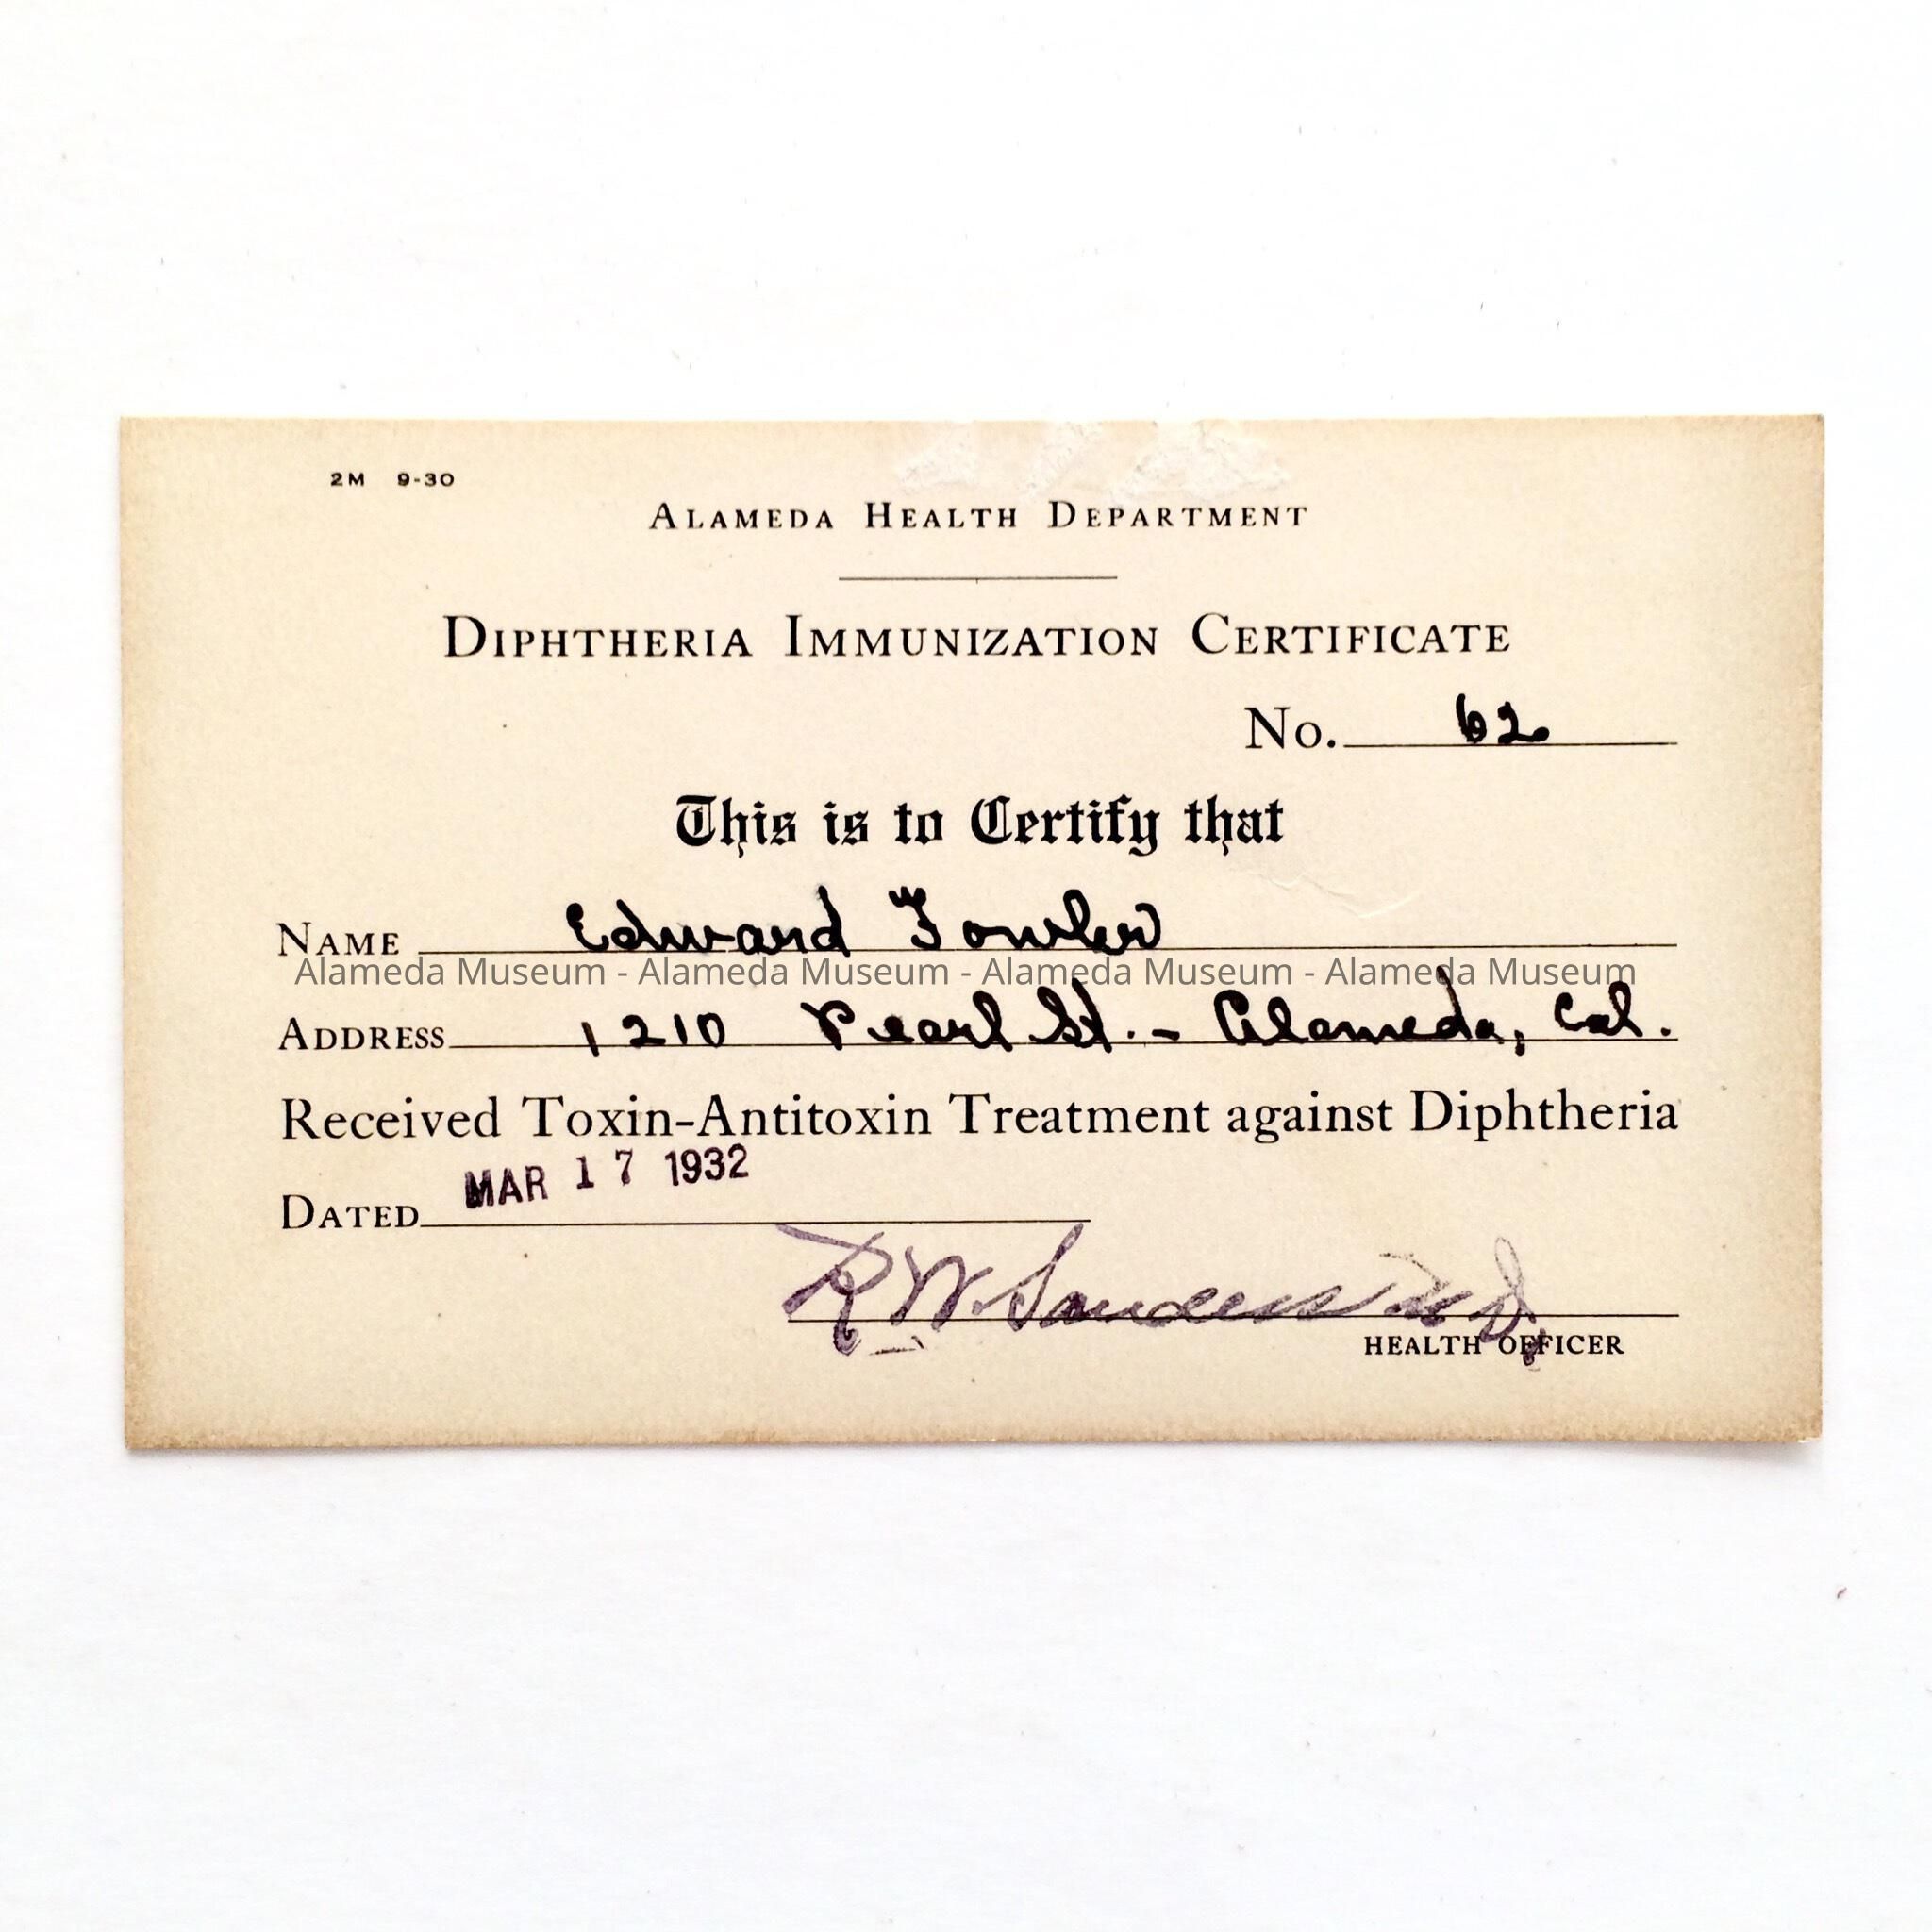 2M 9-30
ALAMEDA HEALTH DEPARTMENT
DIPHTHERIA IMMUNIZATION CERTIFICATE
No. 62
This is to Certify that
NAME Edward Fowler
Alameda Museum - Alameda Museum - Alameda Museum - Alameda Museum
ADDRESS 1210 Pearl St. - Alameda, Cal.
Received Toxin-Antitoxin Treatment against Diphtheria
DATED MAR 17 1932
R W. Sanders M D.
HEALTH OFFICER